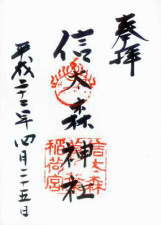 奉拝
信太森神社
信太森
稲荷宮
平成二十二年四月二十五日